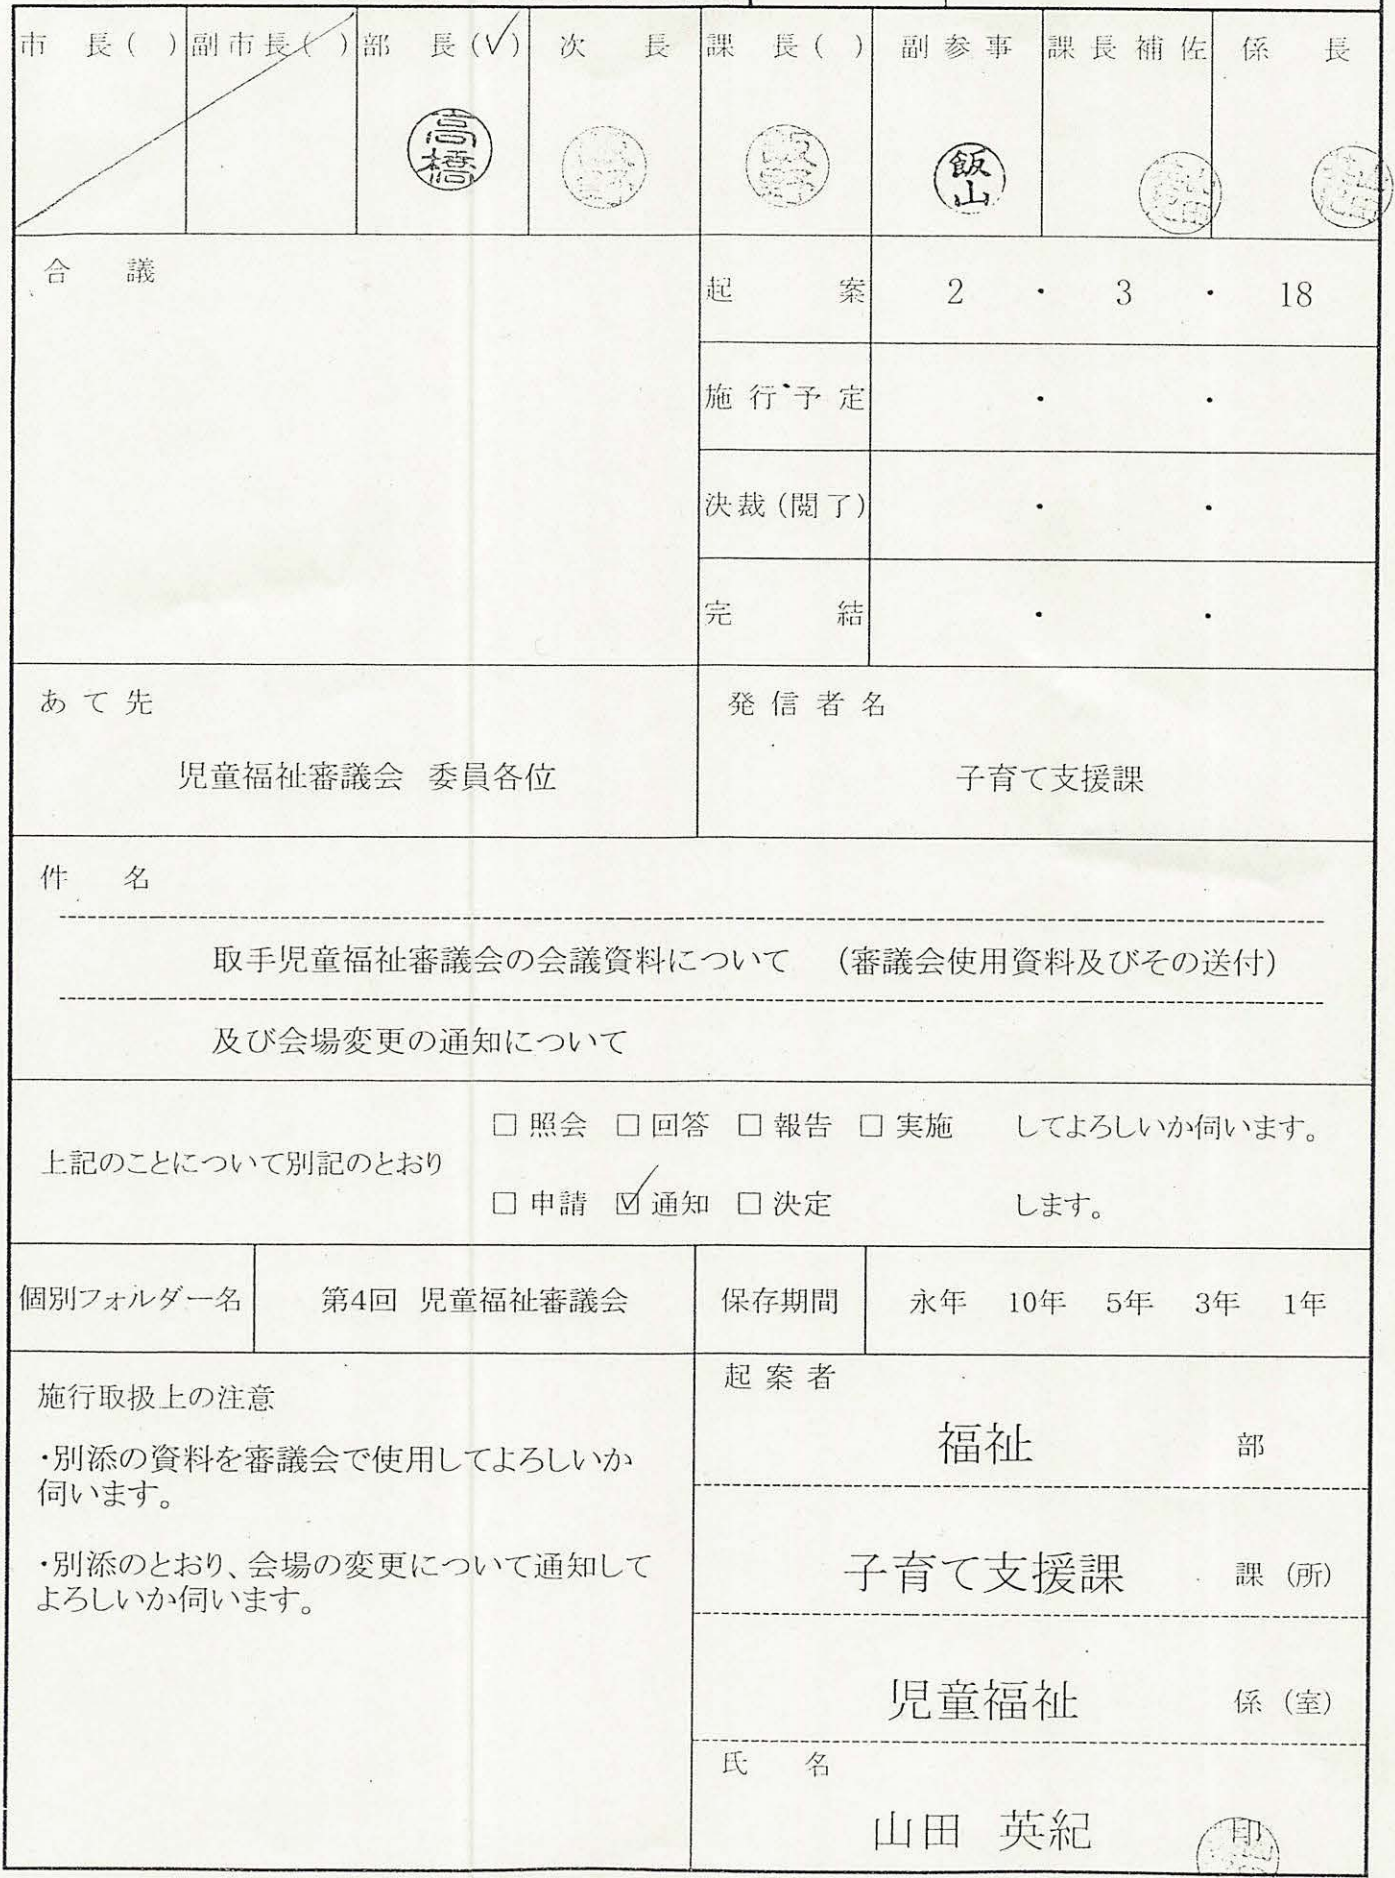 市 長( ) 副市長( ) 部 長(✓) 次 長 課 長( ) 副参事 課長補佐 係 長
高橋 飯山
合 議
起 案 2 ・ 3 ・ 18
施行予定 ・ ・
決裁(閲了) ・ ・
完 結 ・ ・
あて先
児童福祉審議会 委員各位
発信者名
子育て支援課
件 名
取手児童福祉審議会の会議資料について (審議会使用資料及びその送付)
及び会場変更の通知について
上記のことについて別記のとおり
□ 照会 □ 回答 □ 報告 □ 実施 してよろしいか伺います。
□ 申請 ☑ 通知 □ 決定 します。
個別フォルダー名 第4回 児童福祉審議会 保存期間 永年 10年 5年 3年 1年
施行取扱上の注意
・別添の資料を審議会で使用してよろしいか
伺います。
・別添のとおり、会場の変更について通知して
よろしいか伺います。
起案者
福祉 部
子育て支援課 課 (所)
児童福祉 係 (室)
氏 名
山田 英紀 印